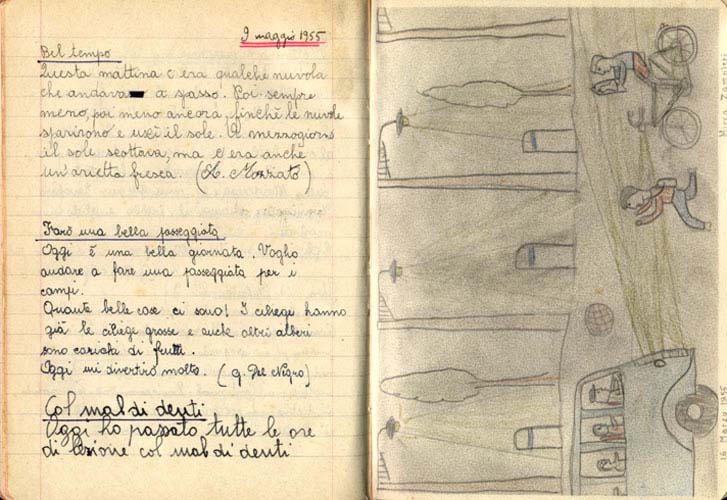 9 maggio 1955
Bel tempo
Questa mattina c'era qualche nuvola
che andava a spasso. Poi sempre
meno, poi meno ancora, finchè le nuvole
sparirono e uscì il sole. A mezzogiorno
il sole scottava, ma c'era anche
un'arietta fresca. (A. Mozzato)
Farò una bella passeggiata
Oggi è una bella giornata. Voglio
andare a fare una passeggiata per i
campi.
Quante belle cose ci sono! I ciliegi hanno
già le ciliege grosse e anche altri alberi
sono carichi di frutti.
Oggi mi divertirò molto. (G. Del Negro)
Col mal di denti
Oggi ho passato tutte le ore
di lezione col mal di denti
16 Marzo 1955